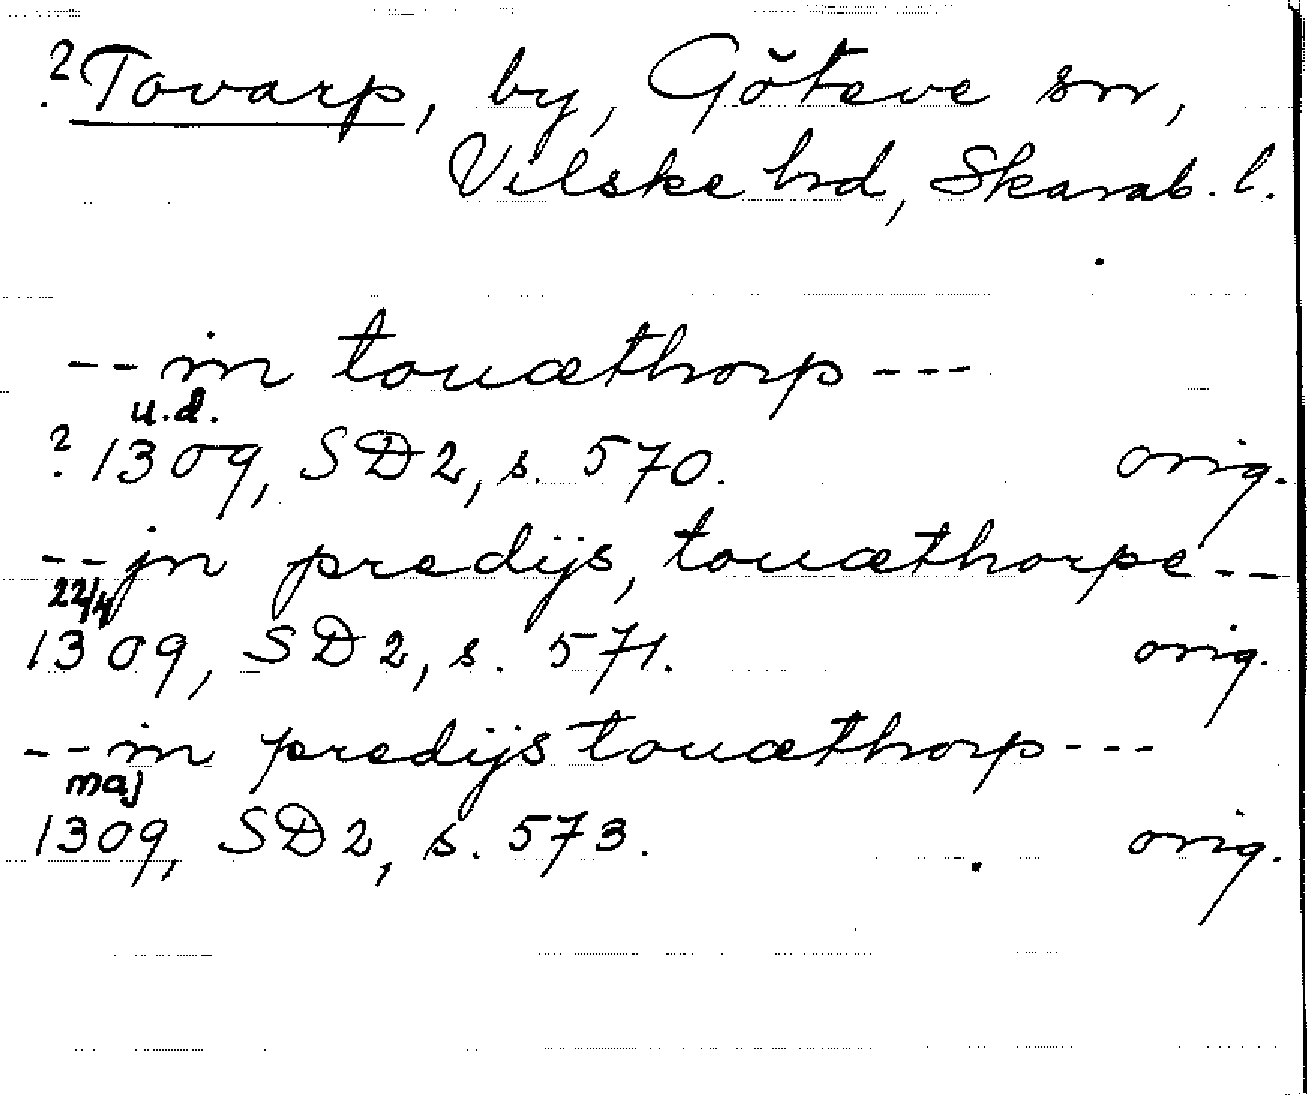 ? Tovarp, by, Göteve sn,
Vilske hrd, Skarab. l.
-- in touæthorp ---
u.d.
? 1309, SD 2, s. 570. orig.
-- jn predijs, touæthorpe --
22/4
1309, SD 2, s. 571. orig.
-- in predijs touæthorp ---
maj
1309, SD 2, s. 573. orig.